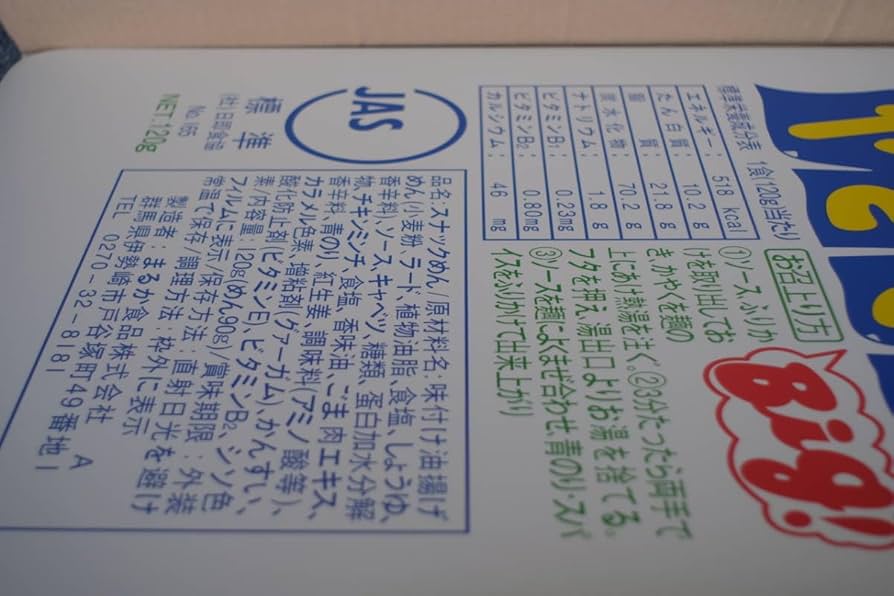 Big!
標準栄養成分表 1食(120g)当たり
エネルギー: 518 kcal
たん白質: 10.2 g
脂質: 21.8 g
炭水化物: 70.2 g
ナトリウム: 1.8 g
ビタミンB₁: 0.23mg
ビタミンB₂: 0.80mg
カルシウム: 46 mg
お召上り方
①ソース、ふりか
けを取り出してお
きかやくを麺の
上にあけ熱湯を注ぐ。②3分たったら両手で
フタを押え、湯出口よりお湯を捨てる。
③ソースを麺によくまぜ合わせ、青のり・スパ
イスをふりかけて出来上がり
JAS
標準
No.165
NET.120g
品名:スナックめん/原材料名:味付け油揚げ
めん(小麦粉、ラード、植物油脂、食塩、しょうゆ、
香辛料)、ソース、キャベツ、糖類、蛋白加水分解
物、チキンミンチ、食塩、香味油、ごま、肉エキス、
香辛料、青のり、紅生姜、調味料(アミノ酸等)、
カラメル色素、増粘剤(グァーガム)、かんすい、
酸化防止剤(ビタミンE)、ビタミンB₂、シソ色
素/内容量:120g(めん90g)/賞味期限:外装
フィルムに表示/保存方法:直射日光を避け
常温で保存/調理方法:枠外に表示
製造者:まるか食品株式会社 A
群馬県伊勢崎市戸谷塚町49番地1
TEL 0270-32-8181